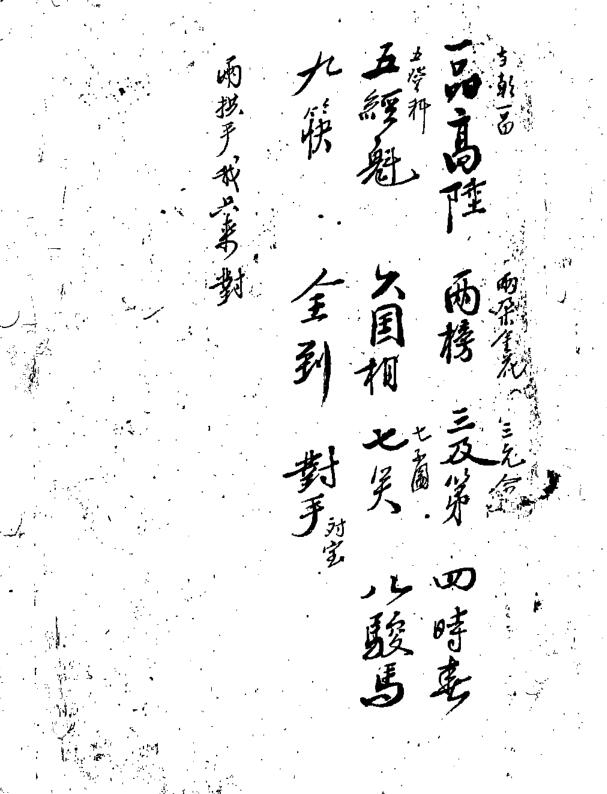 當朝一品 兩朵金花 三元会
一品高陞 兩榜 三及第 四時春
五登科 七子圖
五經魁 六国相 七笑 八駿馬
九簇 全到 對手
対宝
兩拱手 我只来對